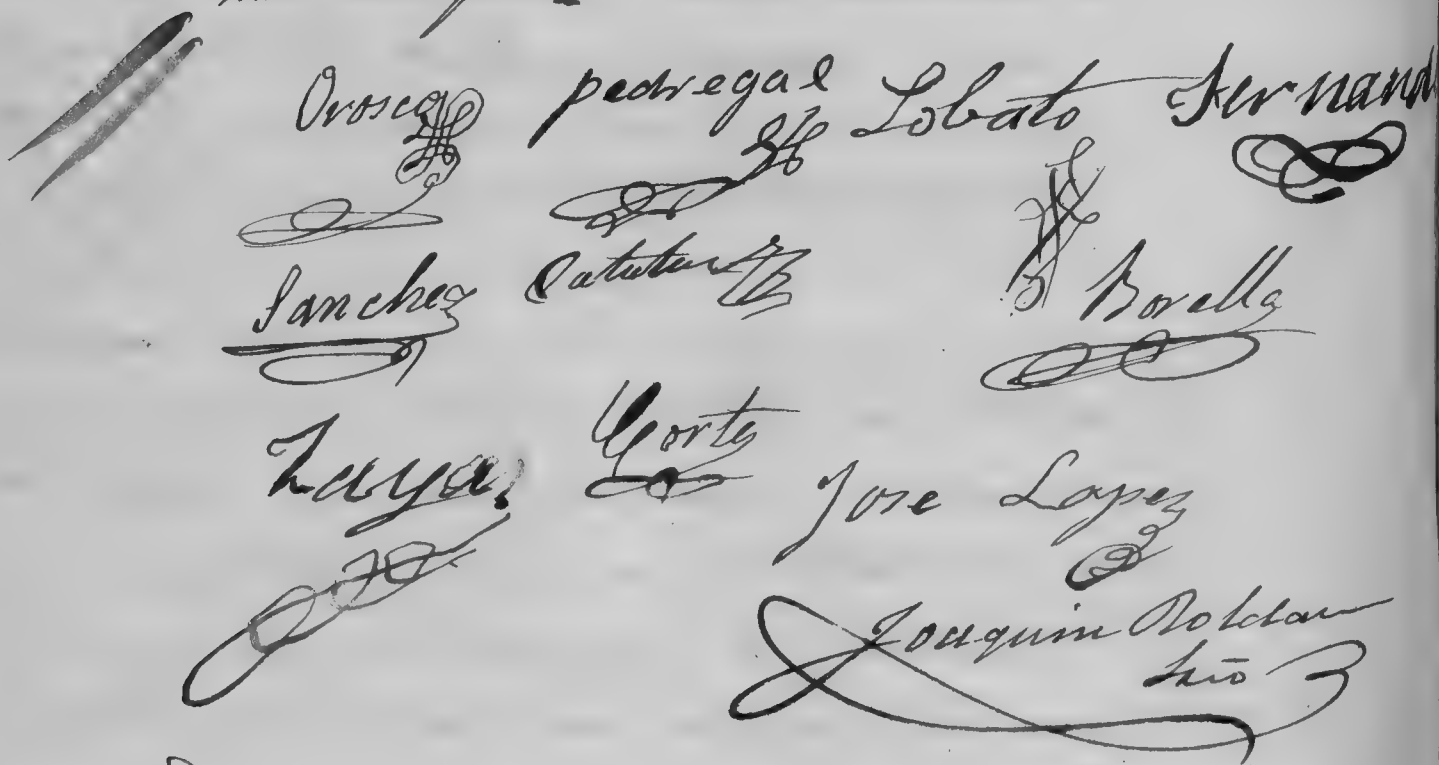 Orosco pedregal Lobato Fernand
Sanchez Borella
Zayas Cortes
Jose Lopez
Joaquin Roldan
Srio